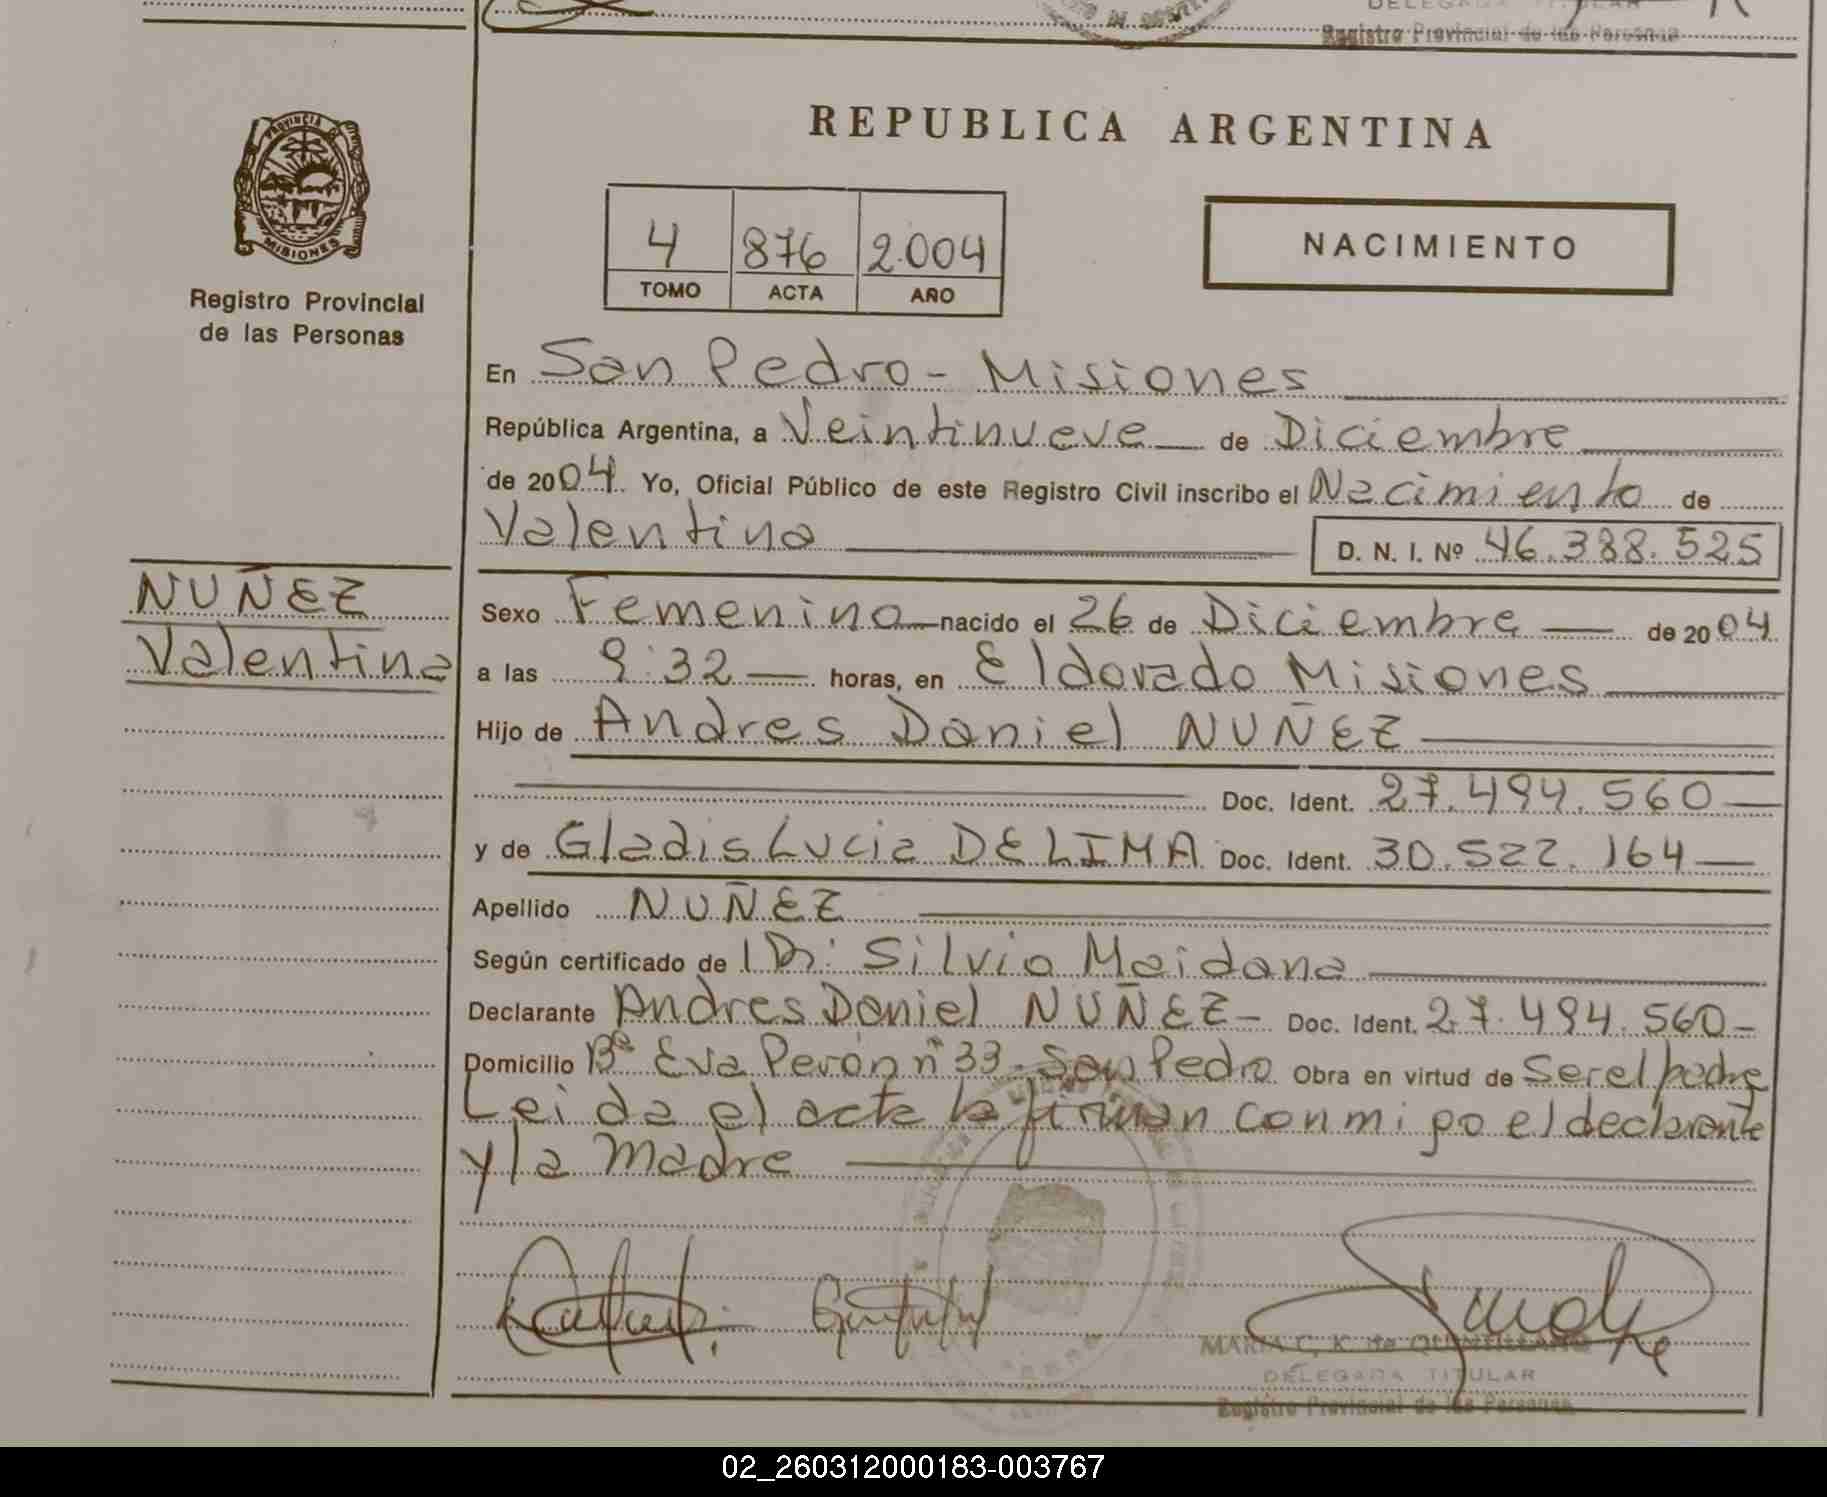 DELEGADA TITULAR
Registro Provincial de las Personas
PROVINCIA DE
MISIONES
Registro Provincial
de las Personas
REPUBLICA ARGENTINA
4 876 2.004
TOMO ACTA AÑO
NACIMIENTO
En San Pedro - Misiones
República Argentina, a Veintinueve de Diciembre
de 2004. Yo, Oficial Público de este Registro Civil inscribo el Nacimiento de
Valentina D. N. I. Nº 46.388.525
NUÑEZ
Valentina
Sexo Femenino nacido el 26 de Diciembre de 2004
a las 9:32 horas, en Eldorado Misiones
Hijo de Andres Daniel NUÑEZ
Doc. Ident. 27.494.560
y de Gladis Lucia DE LIMA Doc. Ident. 30.522.164
Apellido NUÑEZ
Según certificado de Dr: Silvio Maidana
Declarante Andres Daniel NUÑEZ - Doc. Ident. 27.494.560-
Domicilio Bº Eva Perón nº 33 - San Pedro Obra en virtud de Ser el padre
Leida el acta la firman conmigo el declarante
y la madre
MARIA C. K. de
DELEGADA TITULAR
Registro Provincial de las Personas
02_260312000183-003767